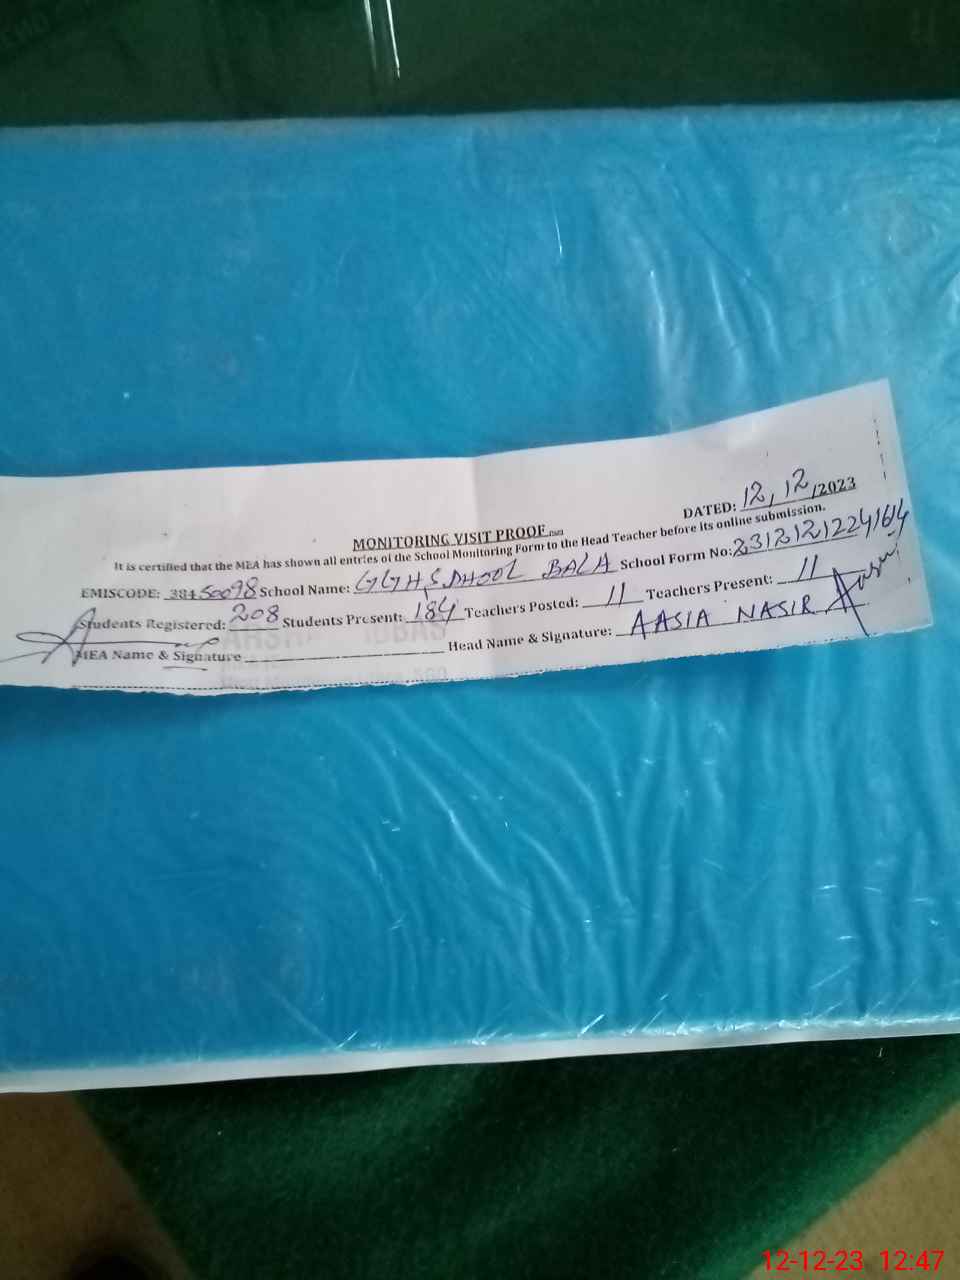 DATED: 12/12/2023
MONITORING VISIT PROOF
It is certified that the MEA has shown all entries of the School Monitoring Form to the Head Teacher before its online submission.
EMISCODE: 38450098 School Name: GGHS DHOOL BALA School Form No: 23121212241614
Students Registered: 208 Students Present: 184 Teachers Posted: 11 Teachers Present: 11
MEA Name & Signature Head Name & Signature: AASIA NASIR
12-12-23 12:47